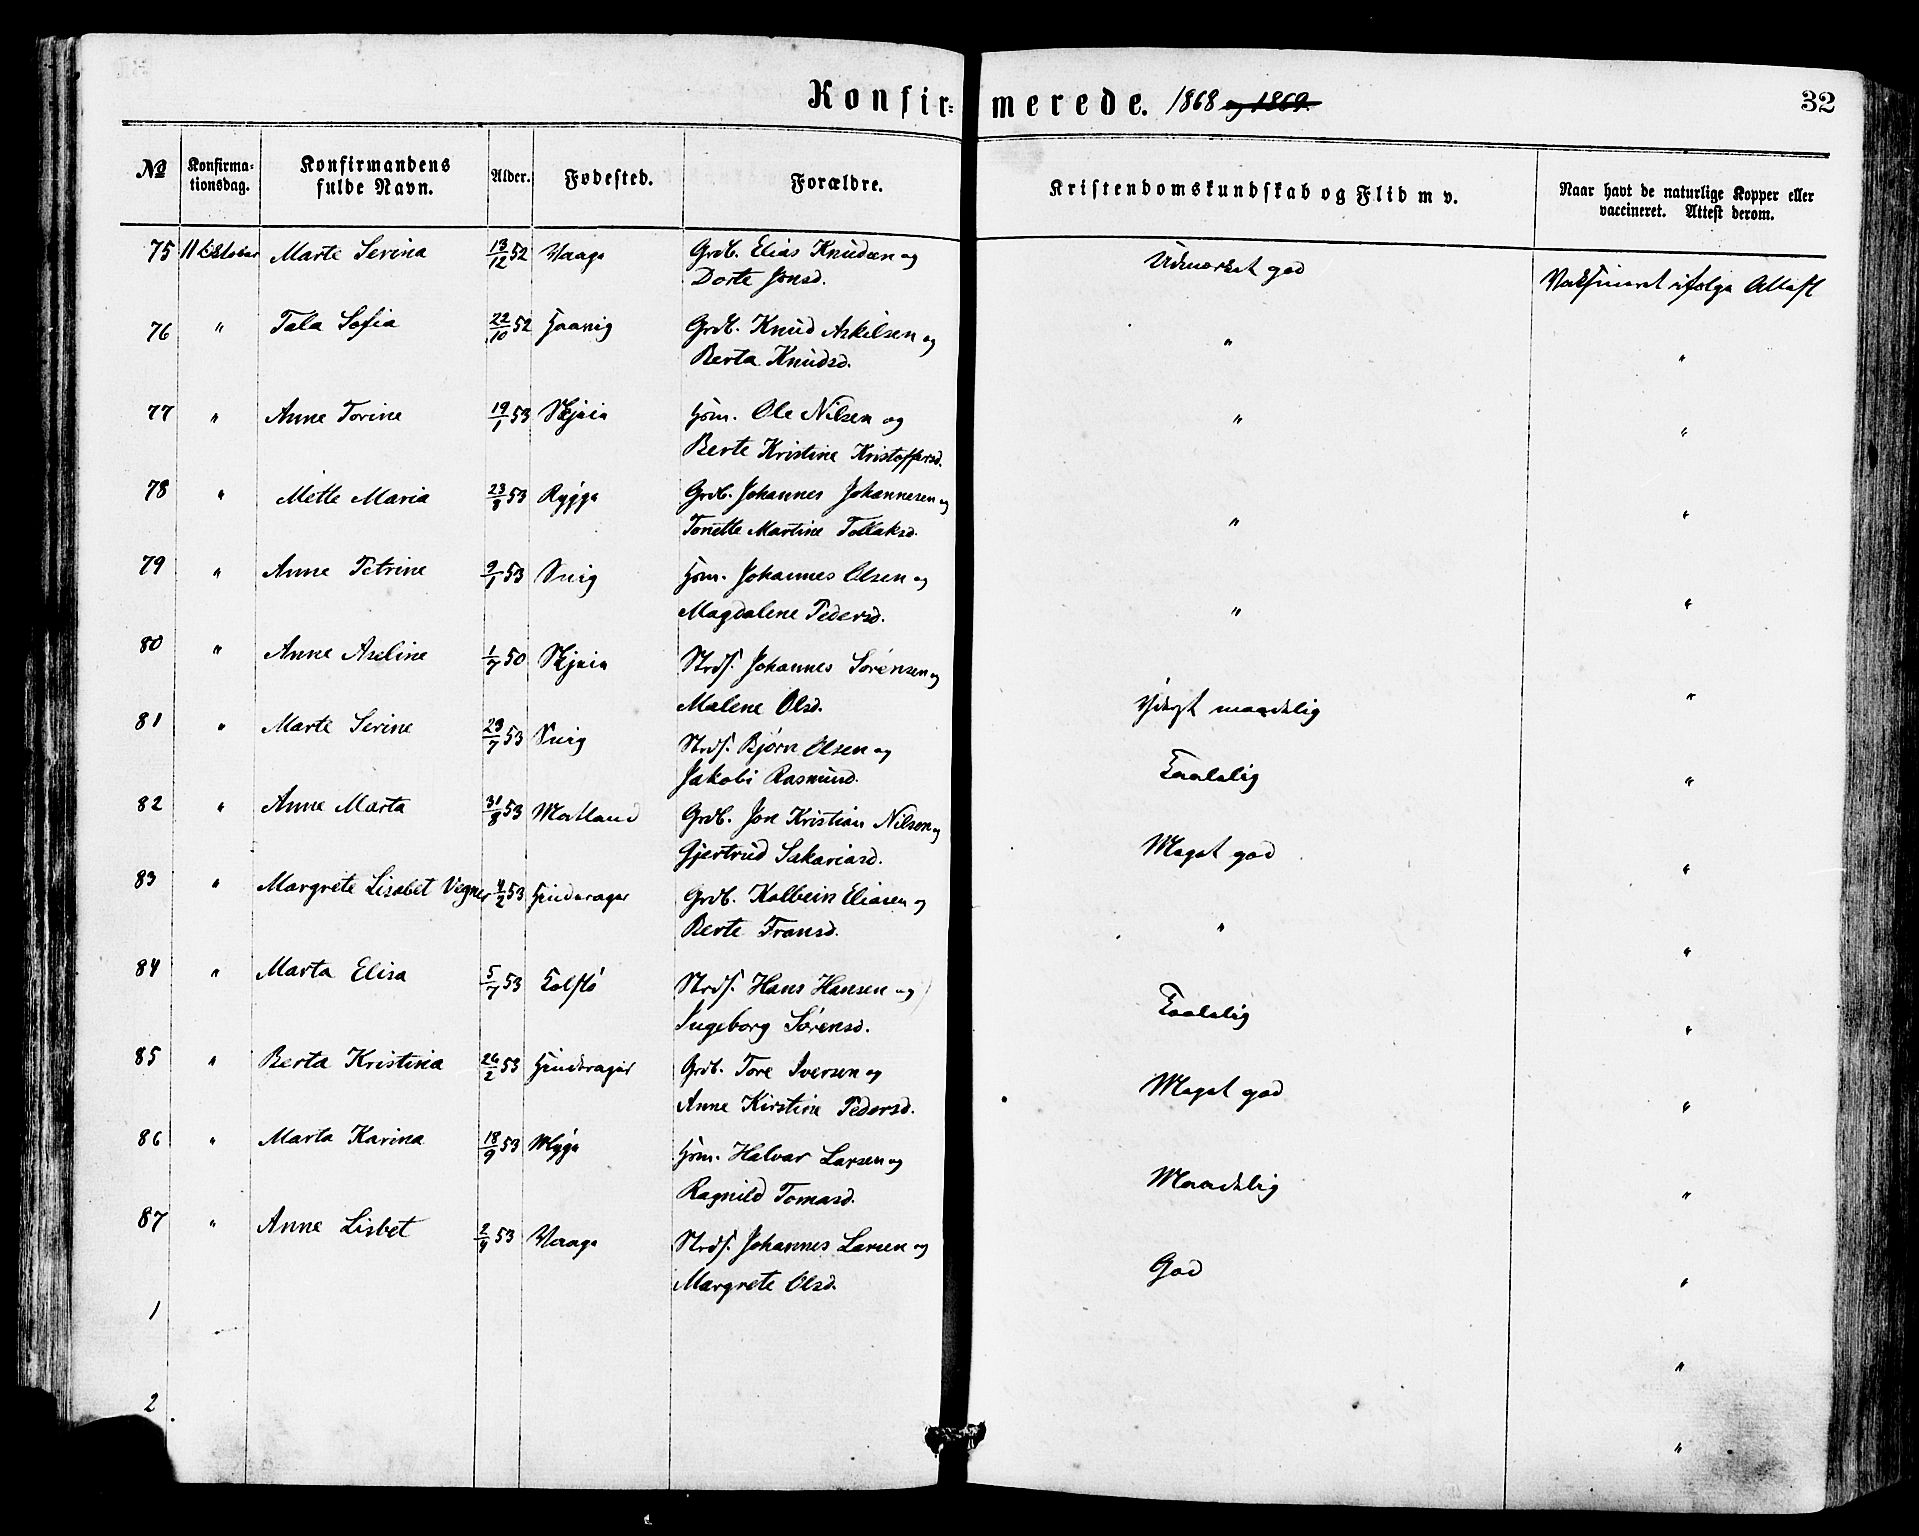 Konfirmerede. 1868 og 1869.
32
№ Konfirmationsdag. Konfirmandens fulde Navn. Alder. Fødested. Forældre. Kristendomskundskab og Flid m v. Naar havt de naturlige Kopper eller vaccineret. Attest derom.
75 11 Oktober Marte Serina 13/12 52 Vaage Grdb. Elias Knudsen og Udmærket god Vaksineret ifølge Attest
Dorte Jonsd.
76 " Tala Sofia 22/10 52 Haavig Grdb. Knud Askilsen og " "
Berta Knudsd.
77 " Anne Torine 19/1 53 Hsm. Ole Nilsen og " "
Berte Kristine Kristoffersd.
78 " Mette Maria 23/8 53 Rygge Grdb. Johannes Johannesen og " "
Tonette Martine Tollaksd.
79 " Anne Petrine 9/1 53 Hsm. Johannes Olsen og " "
Magdalene Pedersd.
80 " Anne Aseline 1/7 50 Strds. Johannes Sørensen og maadelig "
Malene Olsd.
81 " Marte Serine 23/7 53 Strds. Bjørn Olsen og Taalelig "
Jakobi Rasmusd.
82 " Anne Marta 31/8 53 Matland Grdb. Jon Kristian Nilsen og Meget god "
Gjertrud Sakariasd.
83 " Margrete Lisabet Vegner 4/2 53 Hinderager Grdb. Kolbein Eliasen og " "
Berte Fransd.
84 " Marta Elisa 5/7 53 Strds. Hans Hansen og Taalelig "
Ingeborg Sørensd.
85 " Berta Kristina 26/2 53 Hinderager Grdb. Tore Iversen og Meget god "
Anne Kirstine Pedersd.
86 " Marta Karina 18/9 53 Hsm. Halvar Larsen og Maadelig "
Ragnild Tomasd.
87 " Anne Lisbet 2/4 53 Vaage Strds. Johannes Larsen og God "
Margrete Olsd.
1 "
2 "